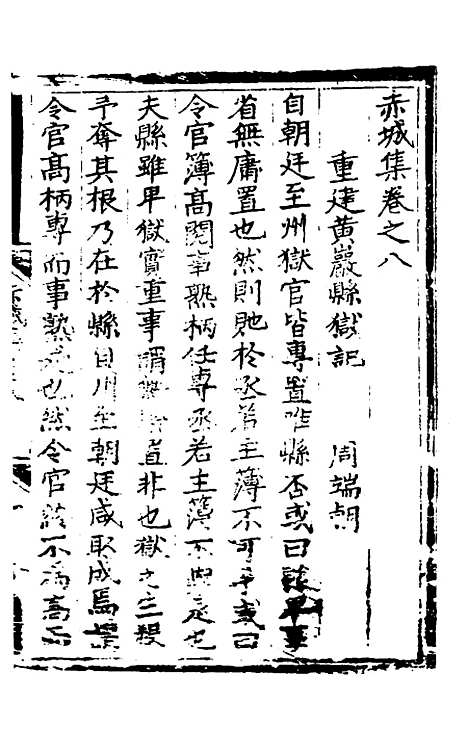 赤城集卷之八
重建黃巖縣獄記 周端朝
自朝廷至州獄官皆專置唯縣否或曰縣卑事
省無庸置也然則貤於丞若主薄不可乎或曰
令官簿高閱事熟柄任專丞若主簿不與定也
夫縣雖卑獄實重事謂置非也獄之三殺
予奪其根乃在於縣自州至朝廷咸取成焉
令官高柄專而事熟也然令官誠不為高而